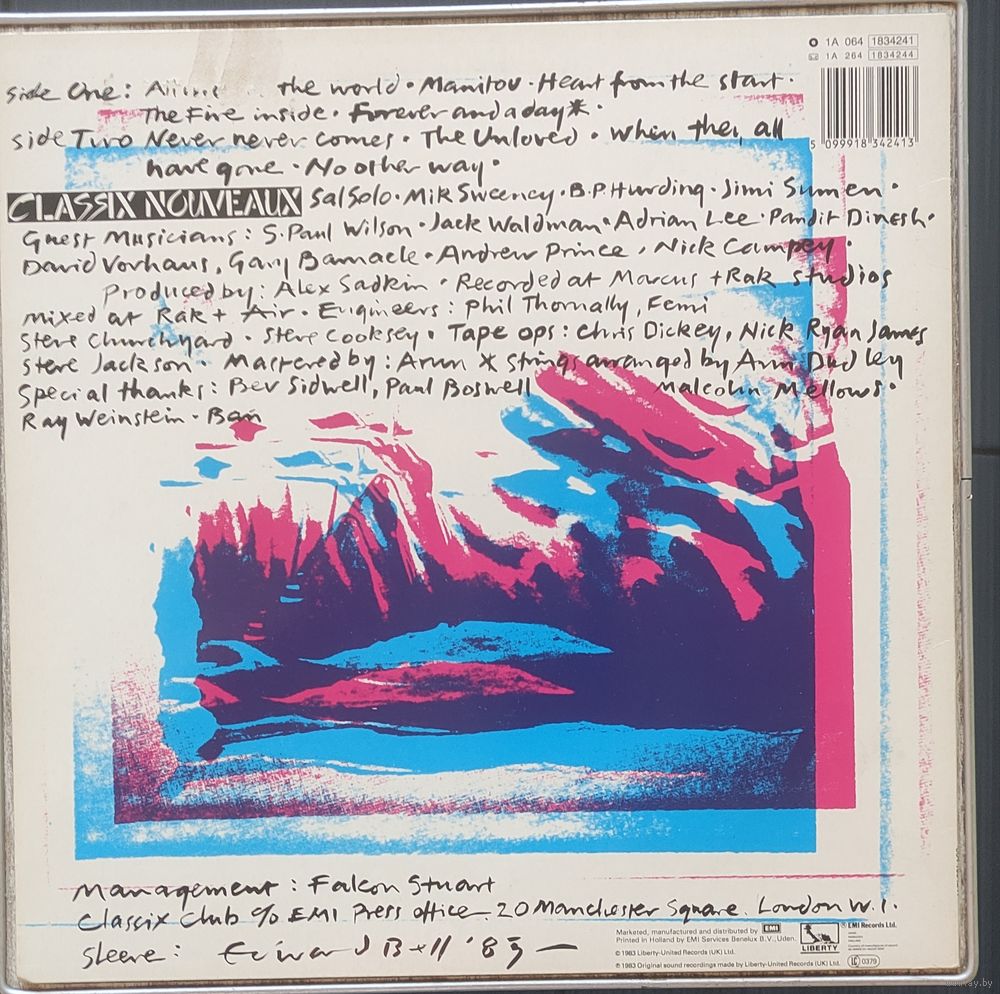 1A 064 1834241
1A 264 1834244
side One: the world · Manitou · Heart from the start ·
The Fire inside · Forever and a day* ·
side Two Never never comes · The Unloved · when they all
have gone · No other way ·
5 099918 342413
CLASSIX NOUVEAUX Sal Solo · Mik Sweeney · B.P. Hurding · Jimi Sumen ·
Guest Musicians: S. Paul Wilson · Jack Waldman · Adrian Lee · Pandit Dinesh ·
David Vorhaus, Gary Barnacle · Andrew Prince, Nick Campey ·
Produced by: Alex Sadkin · Recorded at Marcus + Rak studios
mixed at Rak + Air · Engineers: Phil Thornally, Femi
Steve Churchyard · Steve Cooksey · Tape ops: Chris Dickey, Nick Ryan James
Steve Jackson · Mastered by: Arun * strings arranged by Ann Dudley
Special thanks: Bev Sidwell, Paul Boswell Malcolm Mellows ·
Ray Weinstein · Ban
Management: Falcon Stuart
Classix Club c/o EMI Press office. 20 Manchester Square. London W.1.
Sleeve: Edward Bell '83
Marketed, manufactured and distributed by EMI
Printed in Holland by EMI Services Benelux B.V., Uden.
℗ 1983 Liberty-United Records (UK) Ltd.
© 1983 Original sound recordings made by Liberty-United Records (UK) Ltd.
LIBERTY
EMI Records Ltd.
LC 0379